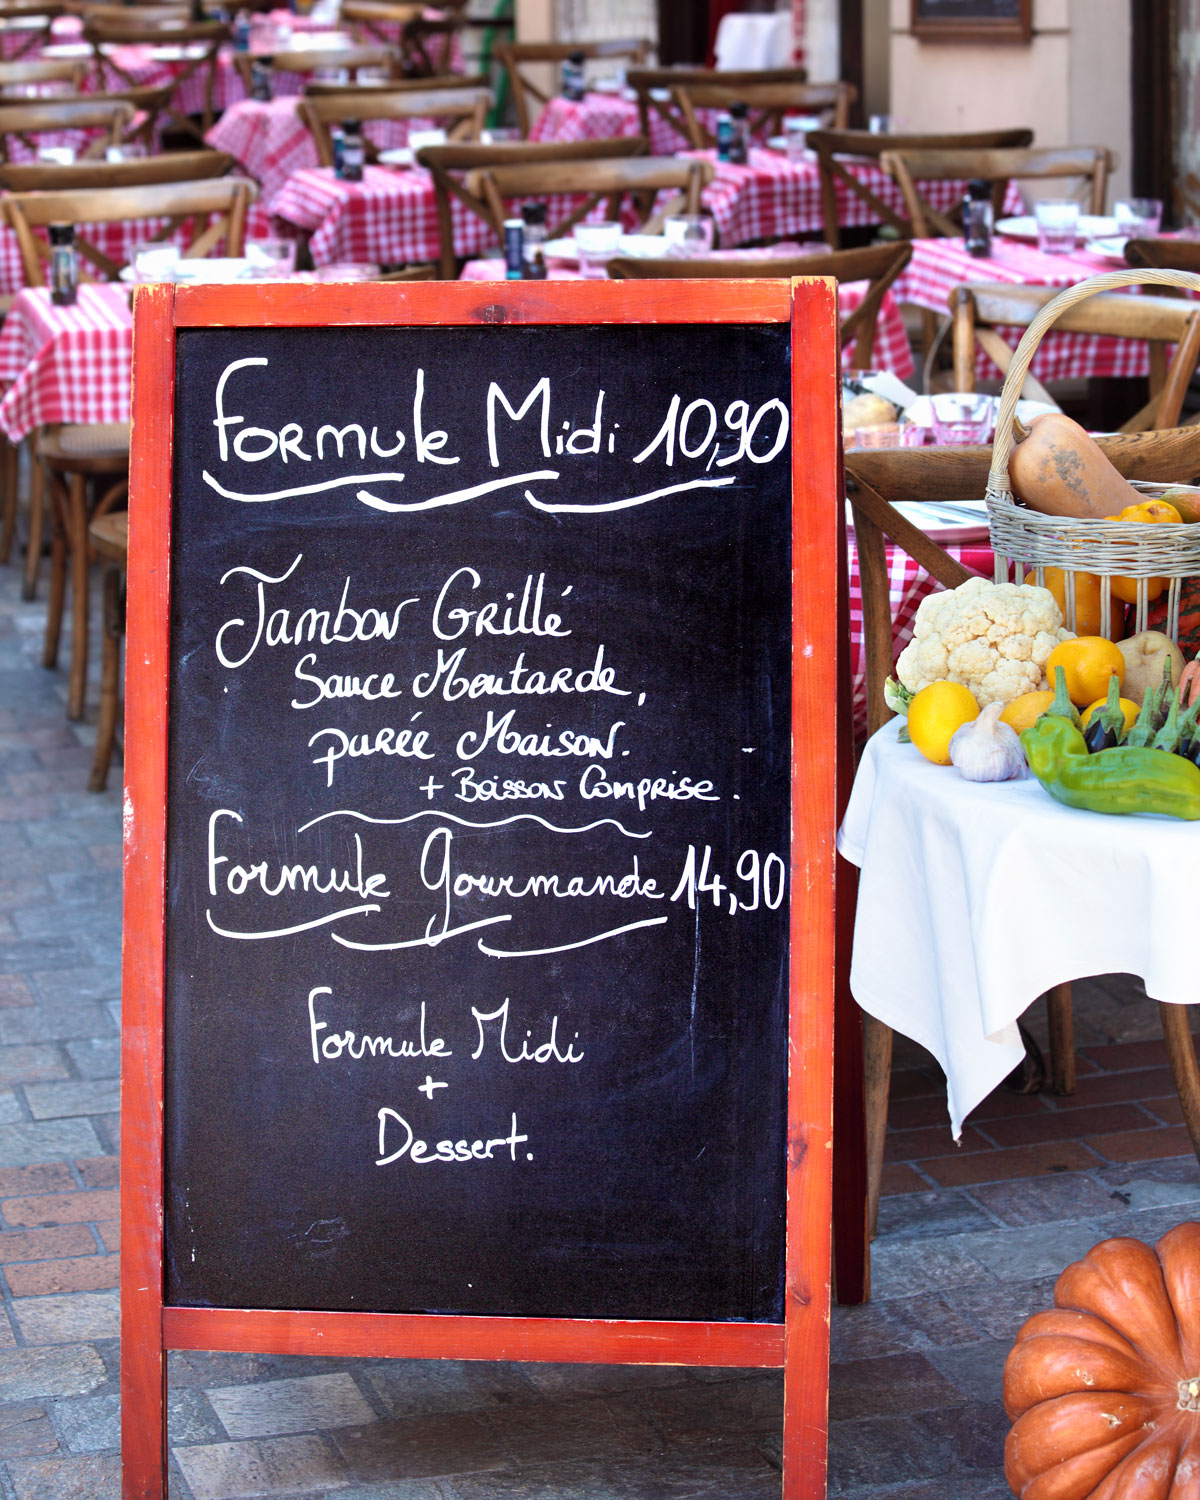 Formule Midi 10,90
Jambon Grillé
Sauce Moutarde,
purée Maison.
+ Boisson Comprise.
Formule gourmande 14,90
Formule Midi
+
Dessert.